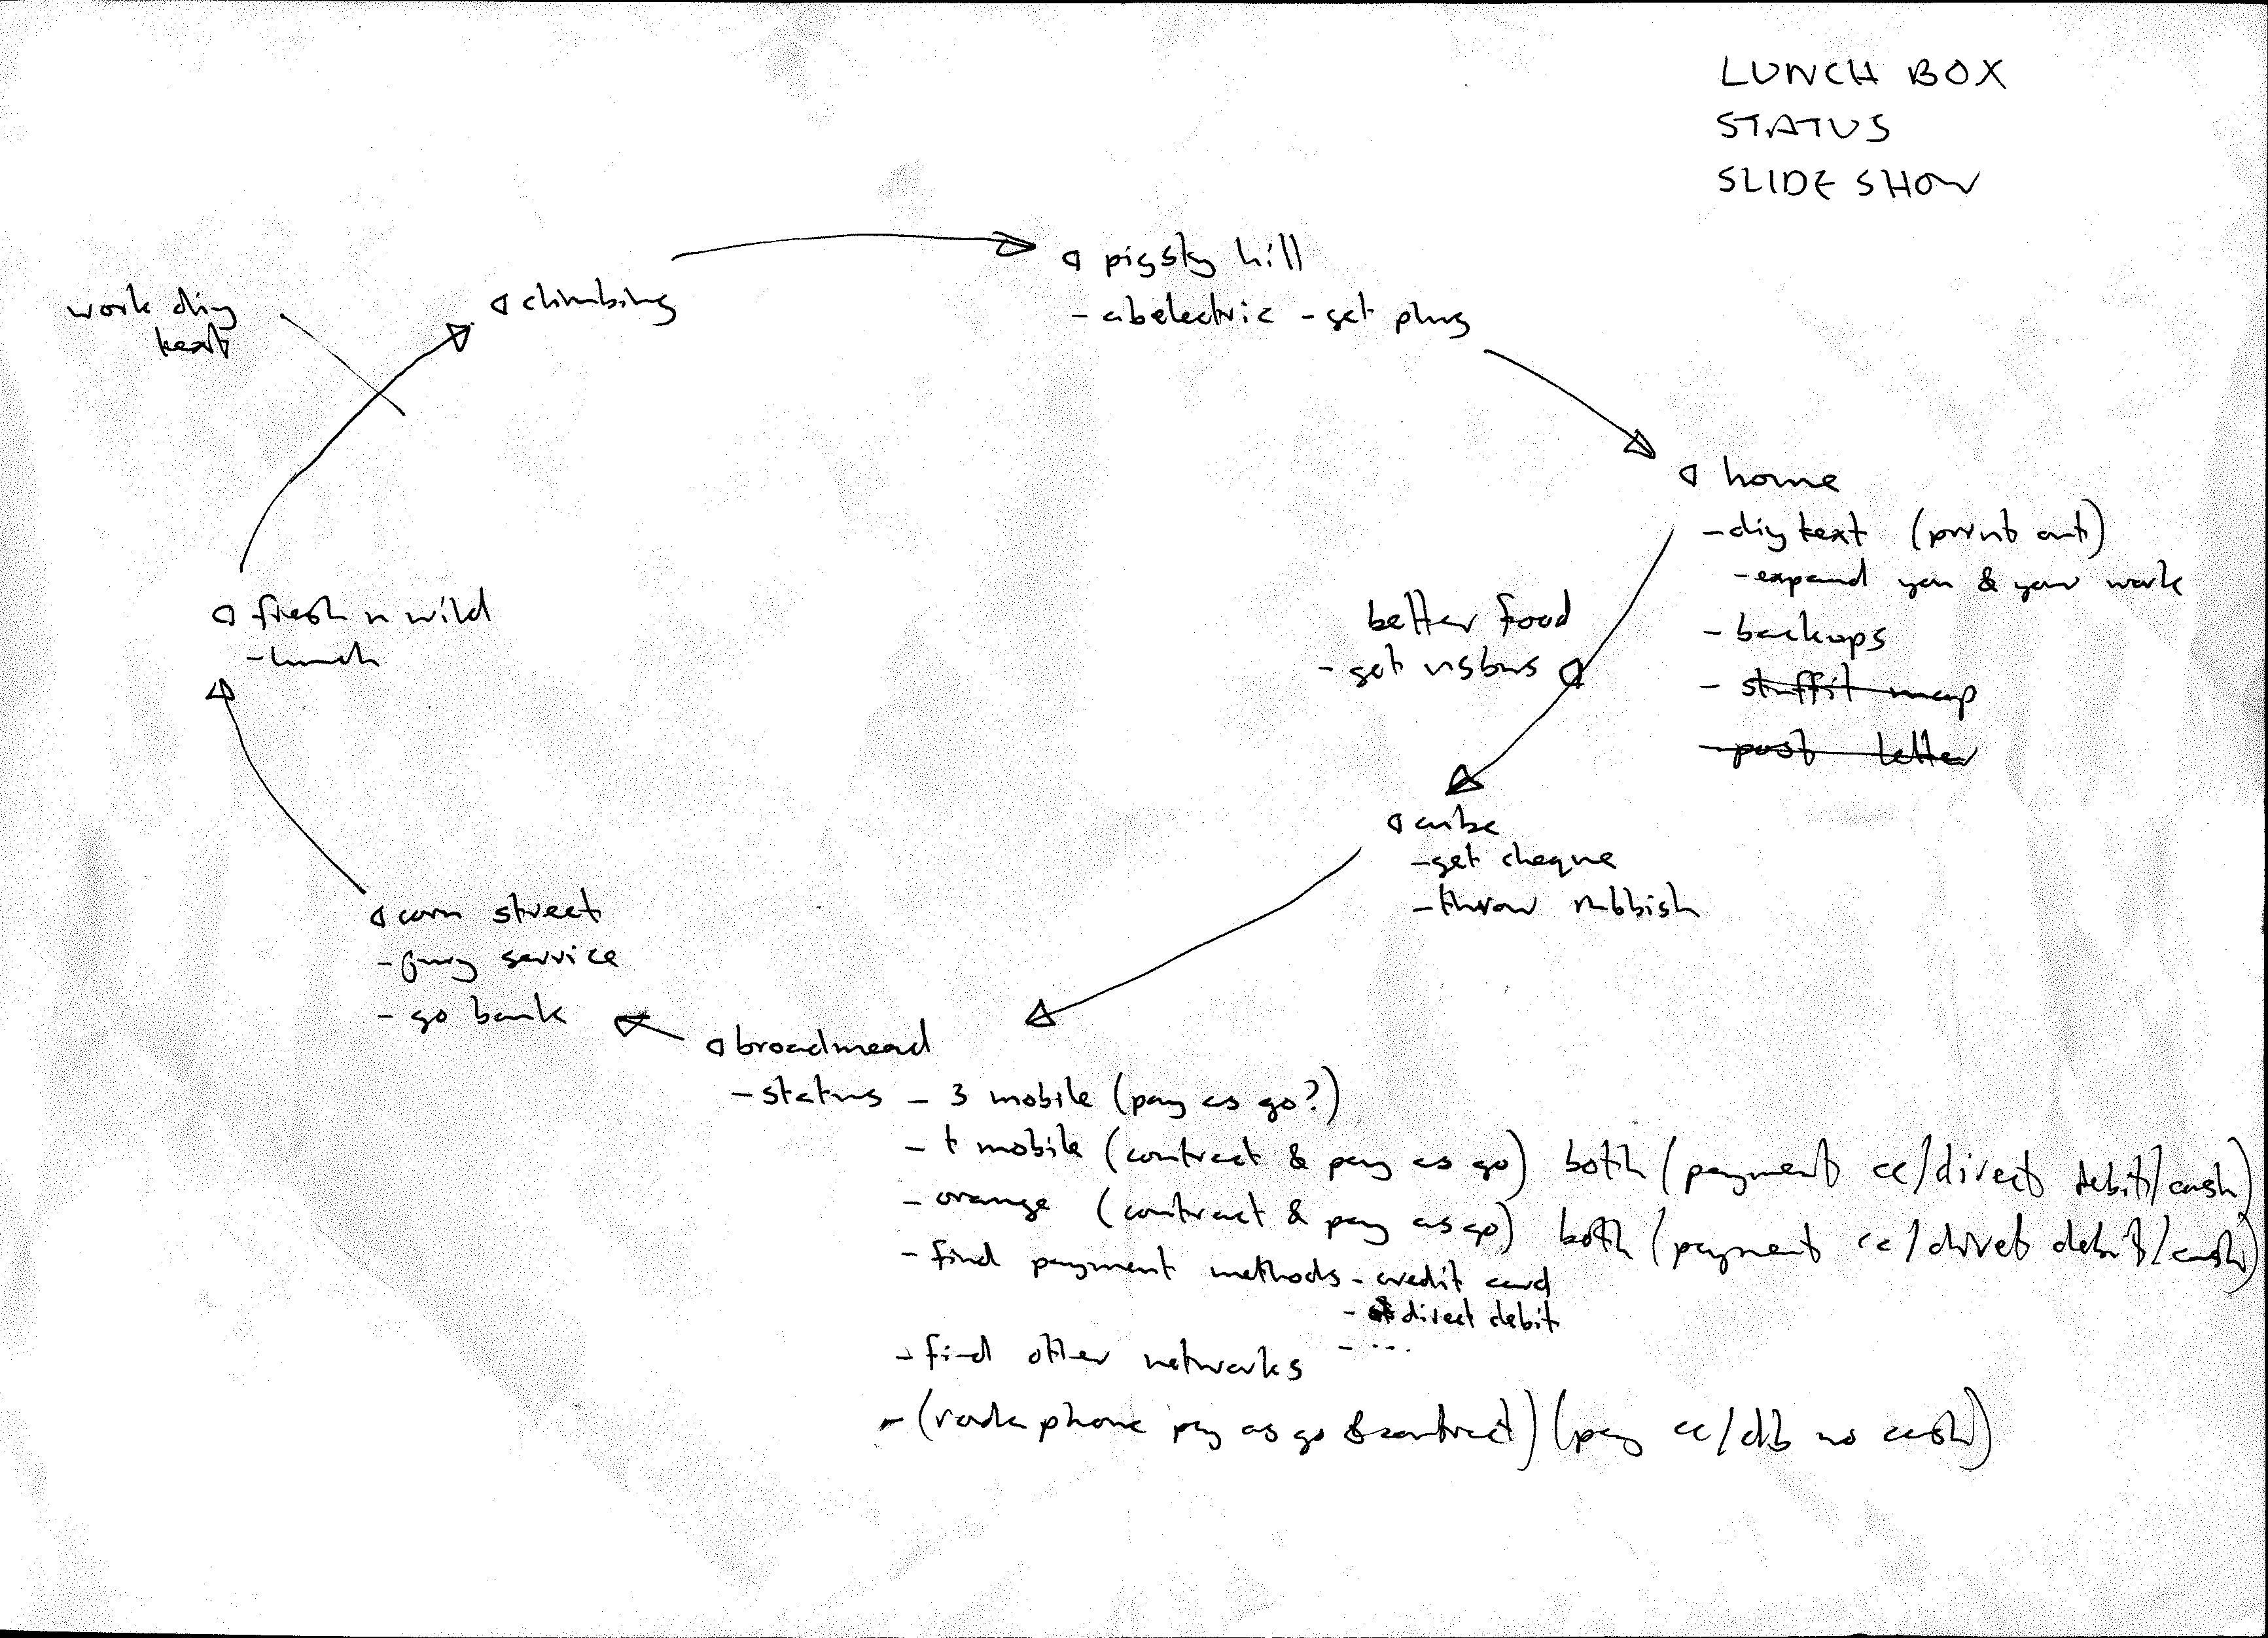 LUNCH BOX
STATUS
SLIDE SHOW
pigsty hill
- abelectric - get plug
climbing
work diy
text
home
- diy text (print out)
- expand you & your work
- backups
- stuffit
- post letter
better food
- get
fresh n wild
- lunch
cube
- get cheque
- throw rubbish
corn street
- service
- go bank
broadmead
- status - 3 mobile (pay as go?)
- t mobile (contract & pay as go) both (payment cc/direct debit/cash)
- orange (contract & pay as go) both (payment cc/direct debit/cash)
- find payment methods - credit card
- direct debit
- ...
- find other networks
- (vodaphone pay as go & contract) (pay cc/db no cash)